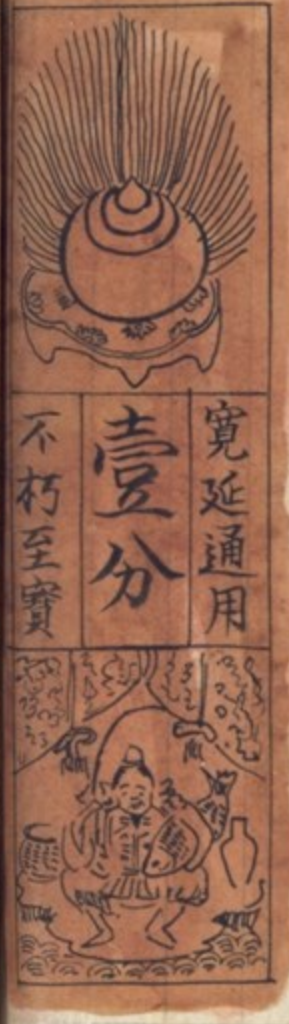 寛延通用
壹分
不朽至寳